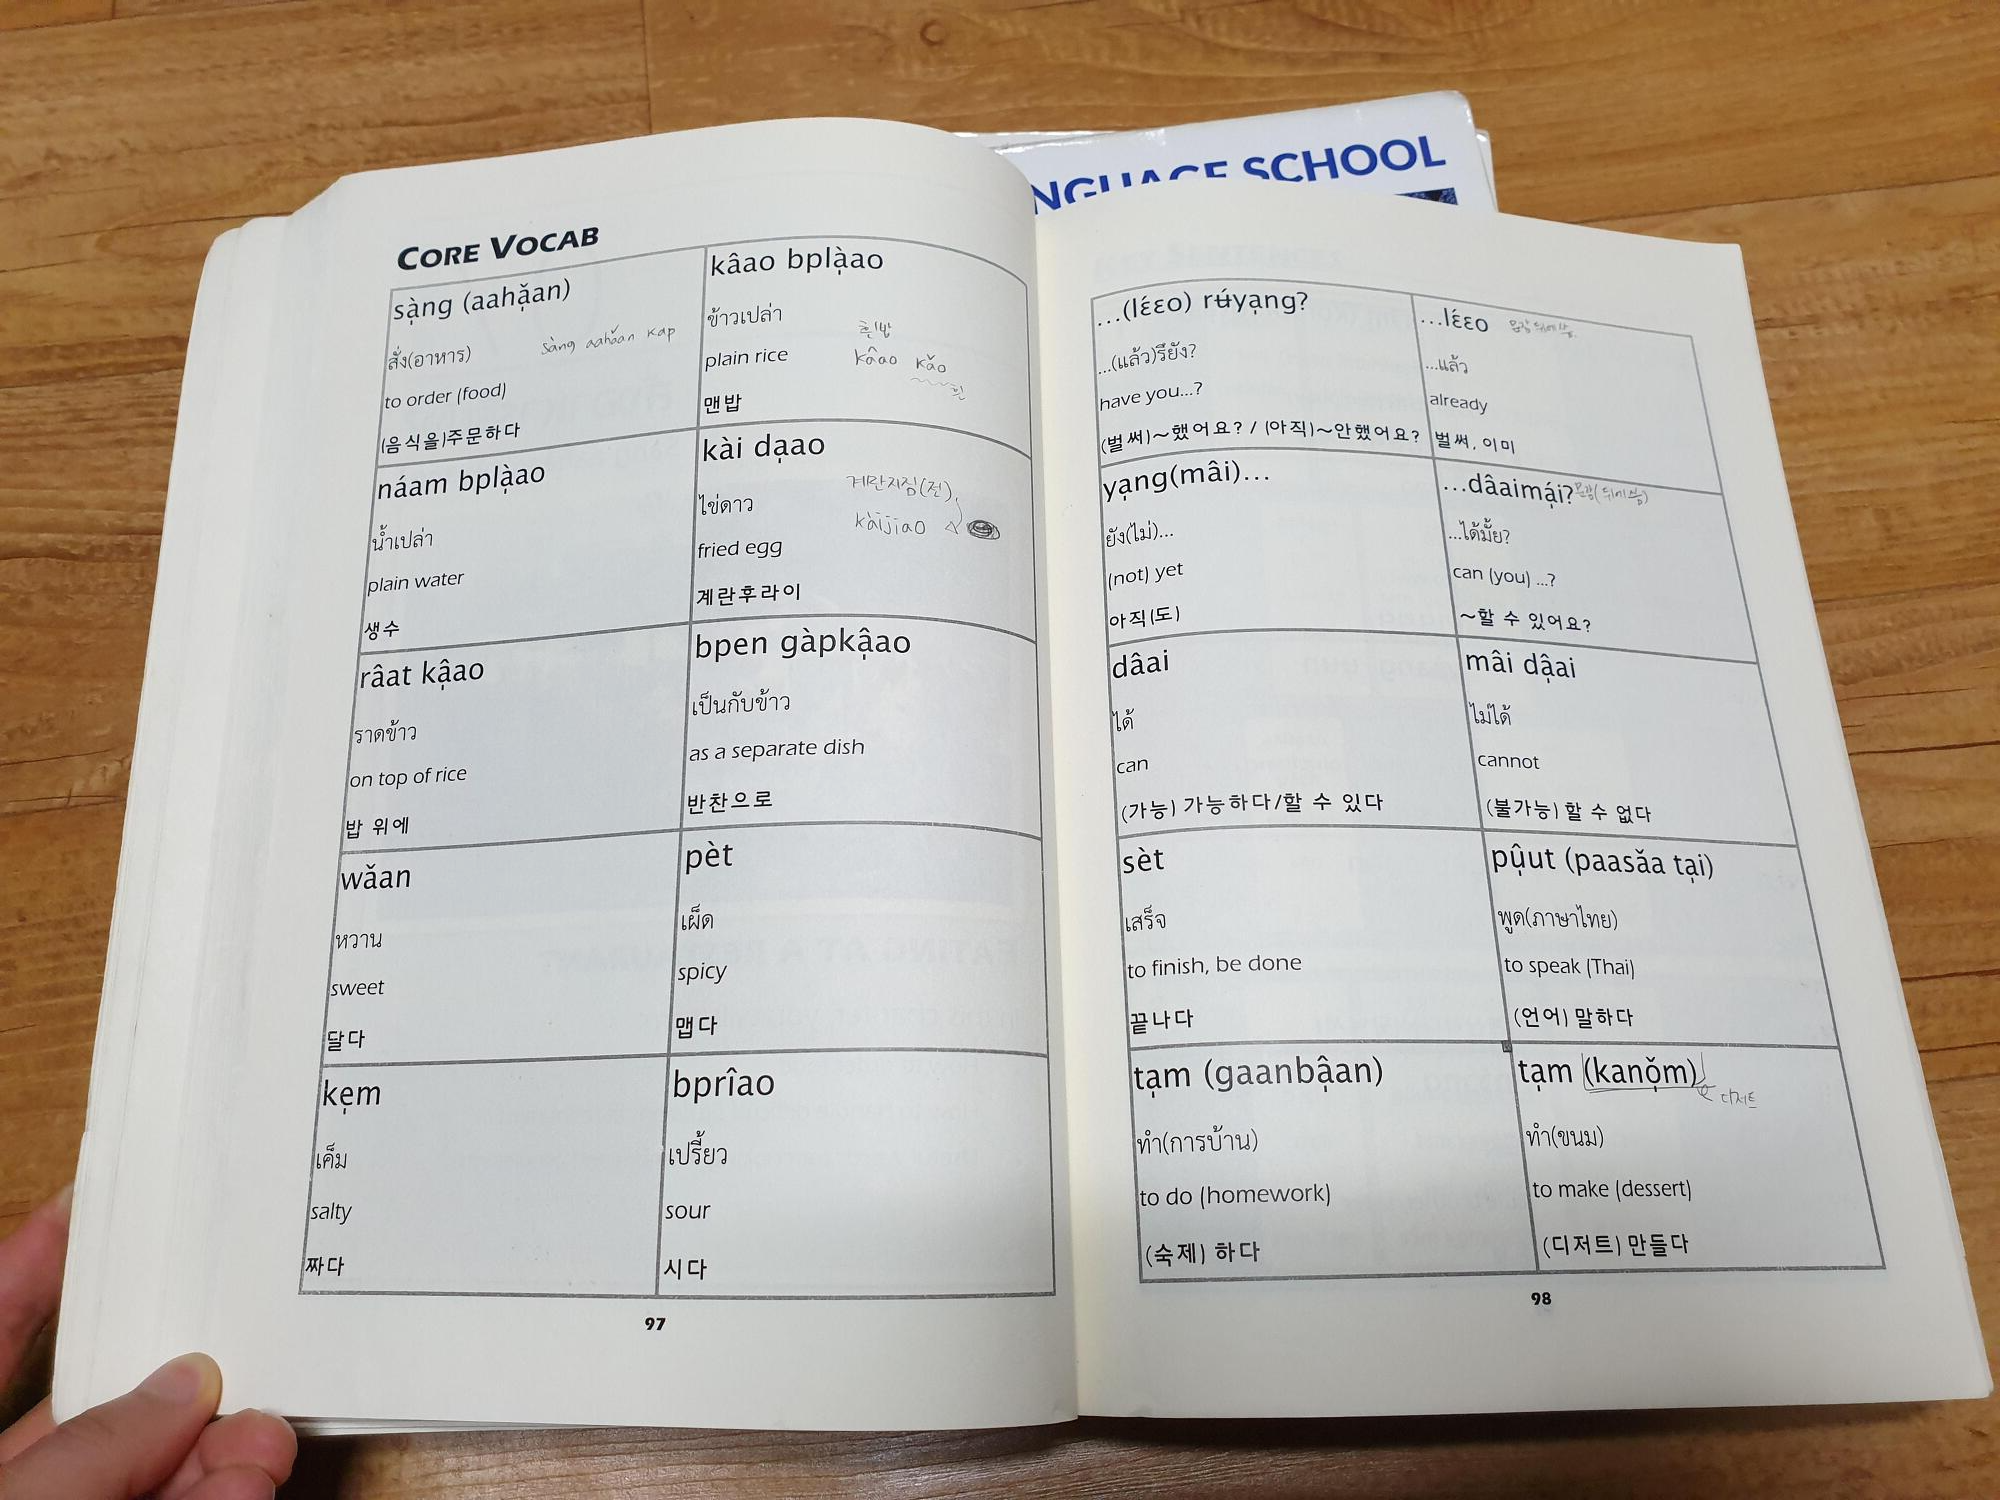 NGUAGE SCHOOL
CORE VOCAB
sạ̀ng (aahạ̌an)
สั่ง(อาหาร)
sàng aahǎan kap
to order (food)
(음식을)주문하다
kâao bplạ̀ao
ข้าวเปล่า
흰밥
plain rice
kâao kǎo
흰
맨밥
náam bplạ̀ao
น้ำเปล่า
plain water
생수
kài dạao
계란지짐(전)
ไข่ดาว
kàijiao
fried egg
계란후라이
râat kậao
ราดข้าว
on top of rice
밥 위에
bpen gàpkậao
เป็นกับข้าว
as a separate dish
반찬으로
wǎan
หวาน
sweet
달다
pèt
เผ็ด
spicy
맵다
kẹm
เค็ม
salty
짜다
bprîao
เปรี้ยว
sour
시다
97
...(lɛ́ɛo) rʉ́yạng?
...(แล้ว)รึยัง?
have you...?
(벌써)~했어요? / (아직)~안했어요?
...lɛ́ɛo
...แล้ว
already
벌써, 이미
yạng(mâi)...
ยัง(ไม่)...
(not) yet
아직(도)
...dâaimạ́i?
...ได้มั้ย?
can (you) ...?
~할 수 있어요?
dâai
ได้
can
(가능) 가능하다/할 수 있다
mâi dậai
ไม่ได้
cannot
(불가능) 할 수 없다
sèt
เสร็จ
to finish, be done
끝나다
pụ̂ut (paasǎa tại)
พูด(ภาษาไทย)
to speak (Thai)
(언어) 말하다
tạm (gaanbậan)
ทำ(การบ้าน)
to do (homework)
(숙제) 하다
tạm (kanọ̌m)
디저트
ทำ(ขนม)
to make (dessert)
(디저트) 만들다
98